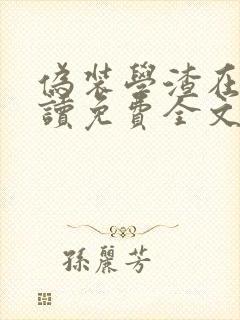 偽裝學渣在
讀免費全文
孫麗芳